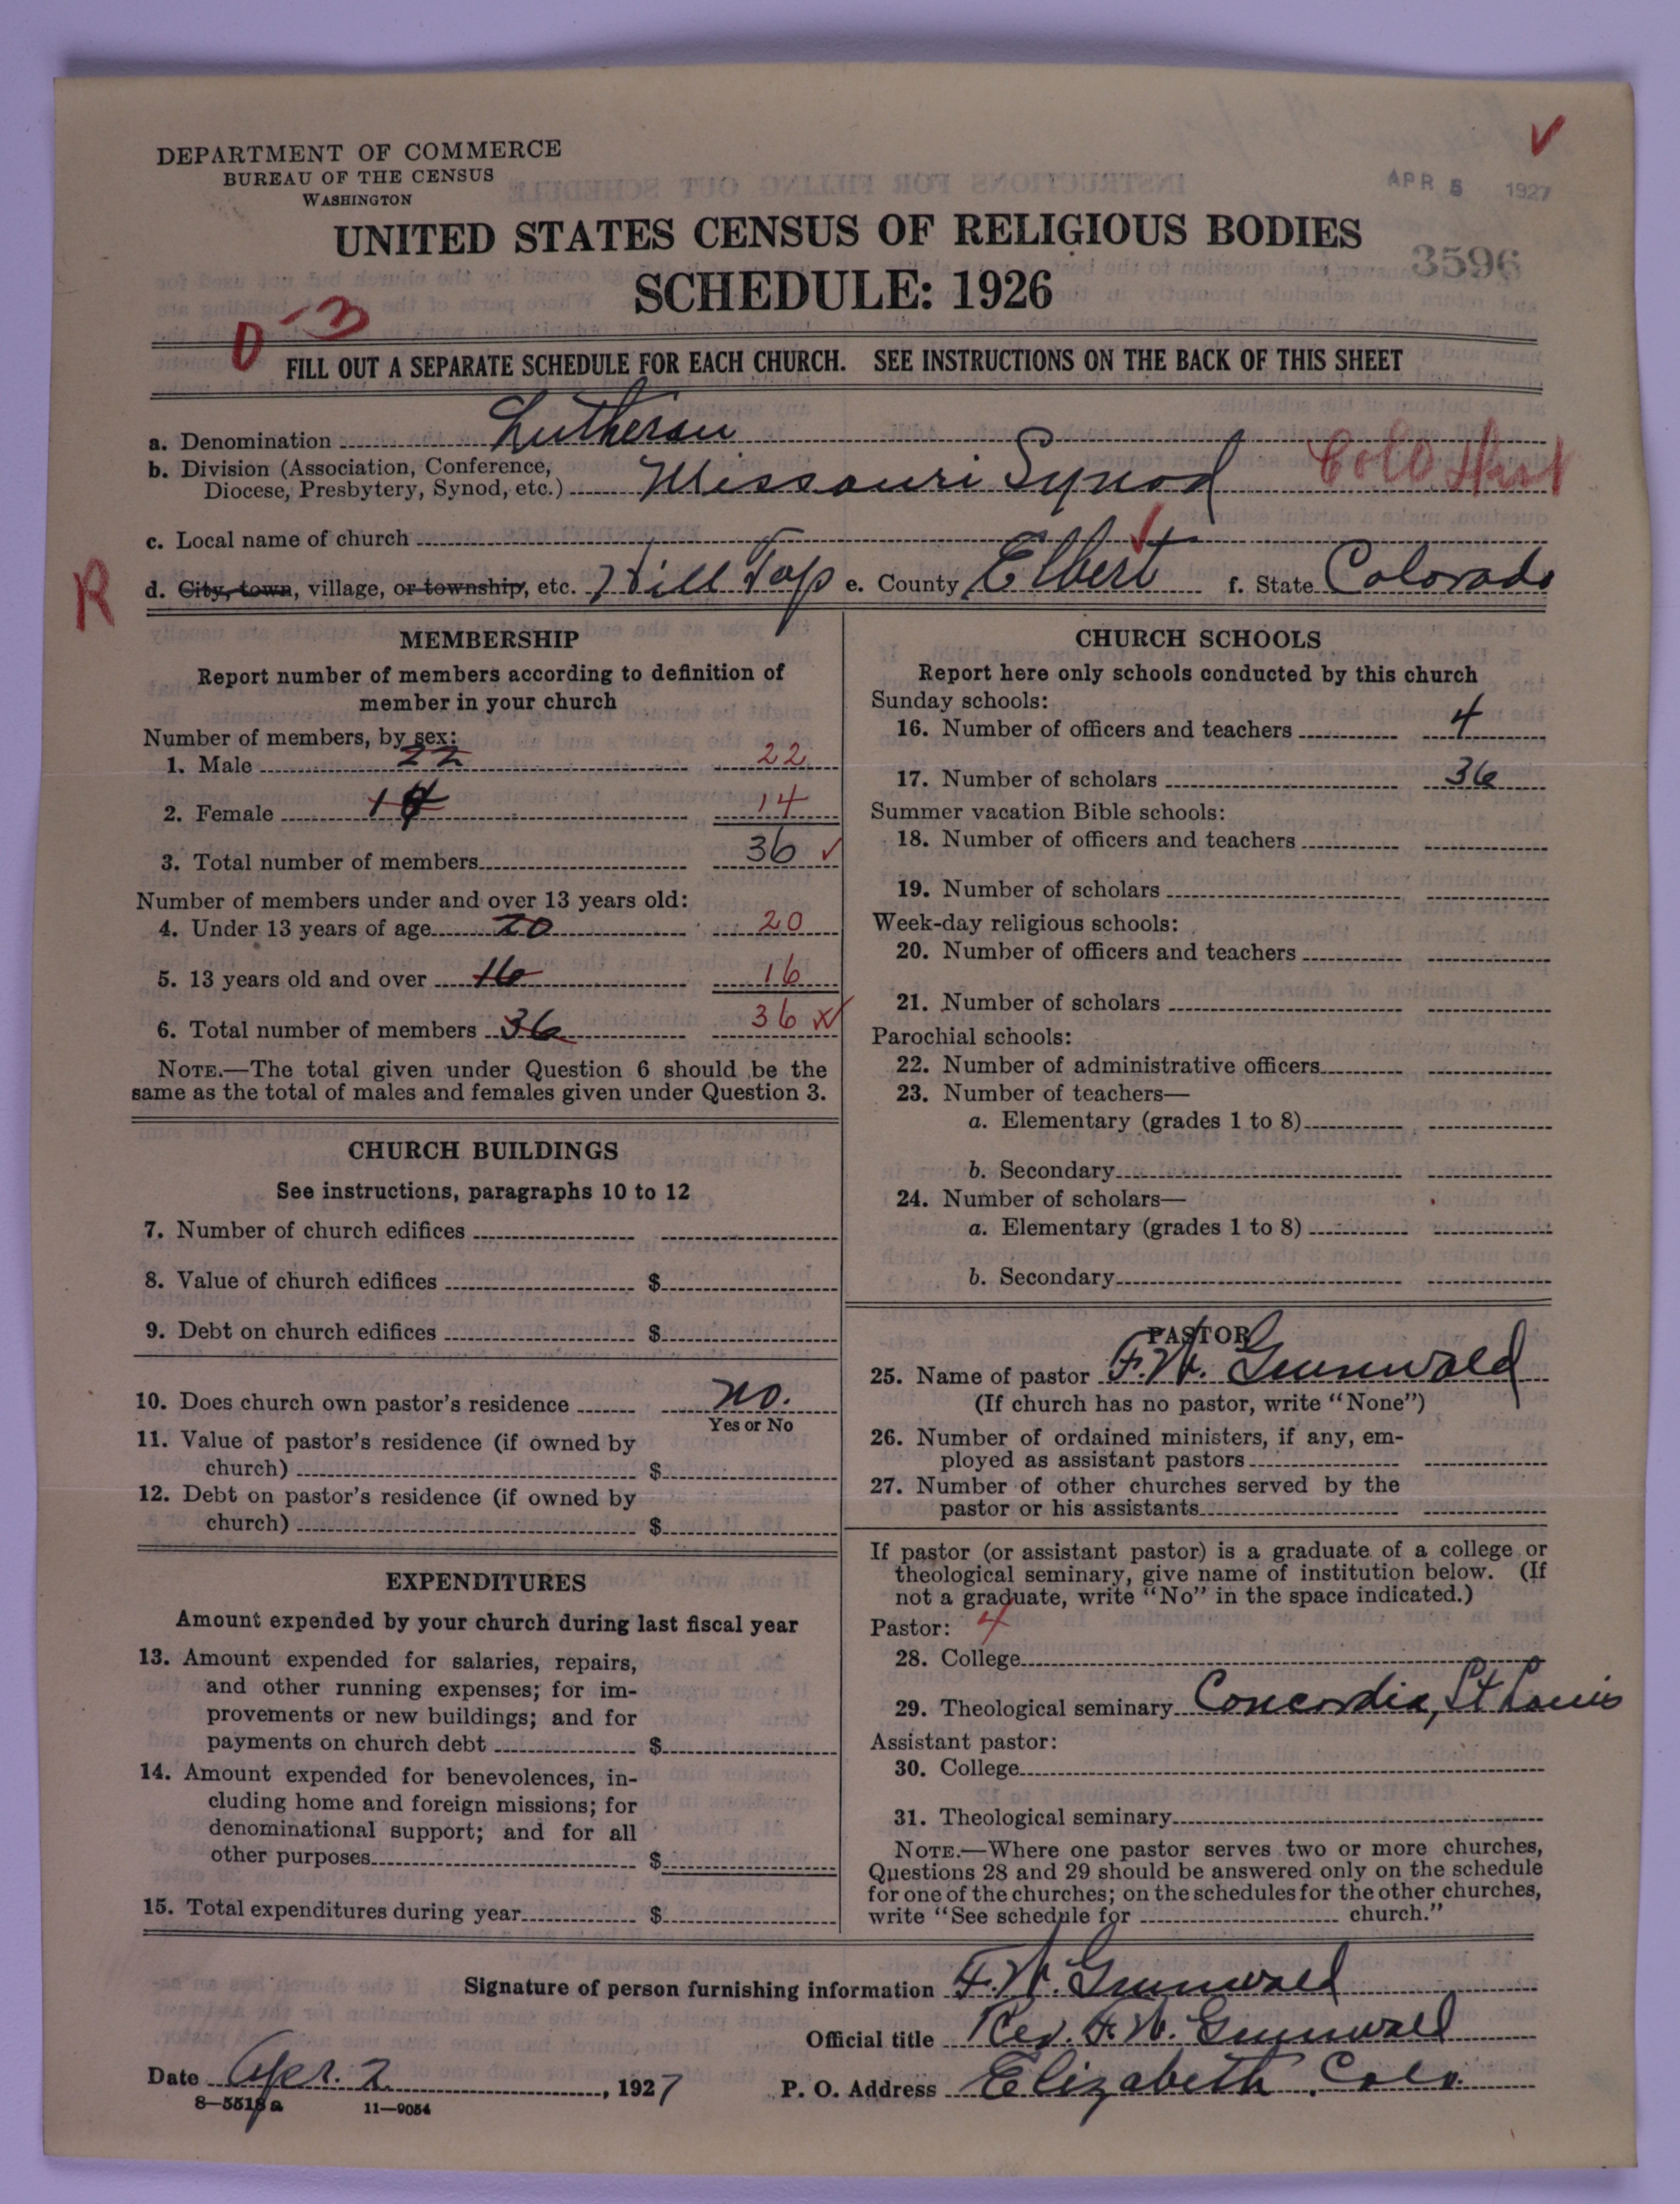 DEPARTMENT OF COMMERCE
BUREAU OF THE CENSUS
WASHINGTON
APR 5 1927
UNITED STATES CENSUS OF RELIGIOUS BODIES
3596
SCHEDULE: 1926
D-3
FILL OUT A SEPARATE SCHEDULE FOR EACH CHURCH. SEE INSTRUCTIONS ON THE BACK OF THIS SHEET
a. Denomination Lutheran
b. Division (Association, Conference,
Diocese, Presbytery, Synod, etc.) Missouri Synod Colo
c. Local name of church
R
d. City, town, village, or township, etc. Hill Top e. County Elbert f. State Colorado
MEMBERSHIP
Report number of members according to definition of
member in your church
Number of members, by sex:
1. Male 22 22
2. Female 14 14
3. Total number of members 36
Number of members under and over 13 years old:
4. Under 13 years of age 20 20
5. 13 years old and over 16 16
6. Total number of members 36 36
NOTE.—The total given under Question 6 should be the
same as the total of males and females given under Question 3.
CHURCH BUILDINGS
See instructions, paragraphs 10 to 12
7. Number of church edifices
8. Value of church edifices $
9. Debt on church edifices $
10. Does church own pastor's residence no.
Yes or No
11. Value of pastor's residence (if owned by
church) $
12. Debt on pastor's residence (if owned by
church) $
EXPENDITURES
Amount expended by your church during last fiscal year
13. Amount expended for salaries, repairs,
and other running expenses; for im-
provements or new buildings; and for
payments on church debt $
14. Amount expended for benevolences, in-
cluding home and foreign missions; for
denominational support; and for all
other purposes $
15. Total expenditures during year $
CHURCH SCHOOLS
Report here only schools conducted by this church
Sunday schools:
16. Number of officers and teachers 4
17. Number of scholars 36
Summer vacation Bible schools:
18. Number of officers and teachers
19. Number of scholars
Week-day religious schools:
20. Number of officers and teachers
21. Number of scholars
Parochial schools:
22. Number of administrative officers
23. Number of teachers—
a. Elementary (grades 1 to 8)
b. Secondary
24. Number of scholars—
a. Elementary (grades 1 to 8)
b. Secondary
PASTOR
25. Name of pastor F.W. Grunwald
(If church has no pastor, write "None")
26. Number of ordained ministers, if any, em-
ployed as assistant pastors
27. Number of other churches served by the
pastor or his assistants
If pastor (or assistant pastor) is a graduate of a college or
theological seminary, give name of institution below. (If
not a graduate, write "No" in the space indicated.)
Pastor: 4
28. College
29. Theological seminary Concordia, St Louis
Assistant pastor:
30. College
31. Theological seminary
NOTE.—Where one pastor serves two or more churches,
Questions 28 and 29 should be answered only on the schedule
for one of the churches; on the schedules for the other churches,
write "See schedule for church."
Signature of person furnishing information F.W. Grunwald
Official title Rev. F.W. Grunwald
Date Apr. 2 , 1927 P. O. Address Elizabeth, Colo.
8—5518a 11—9054